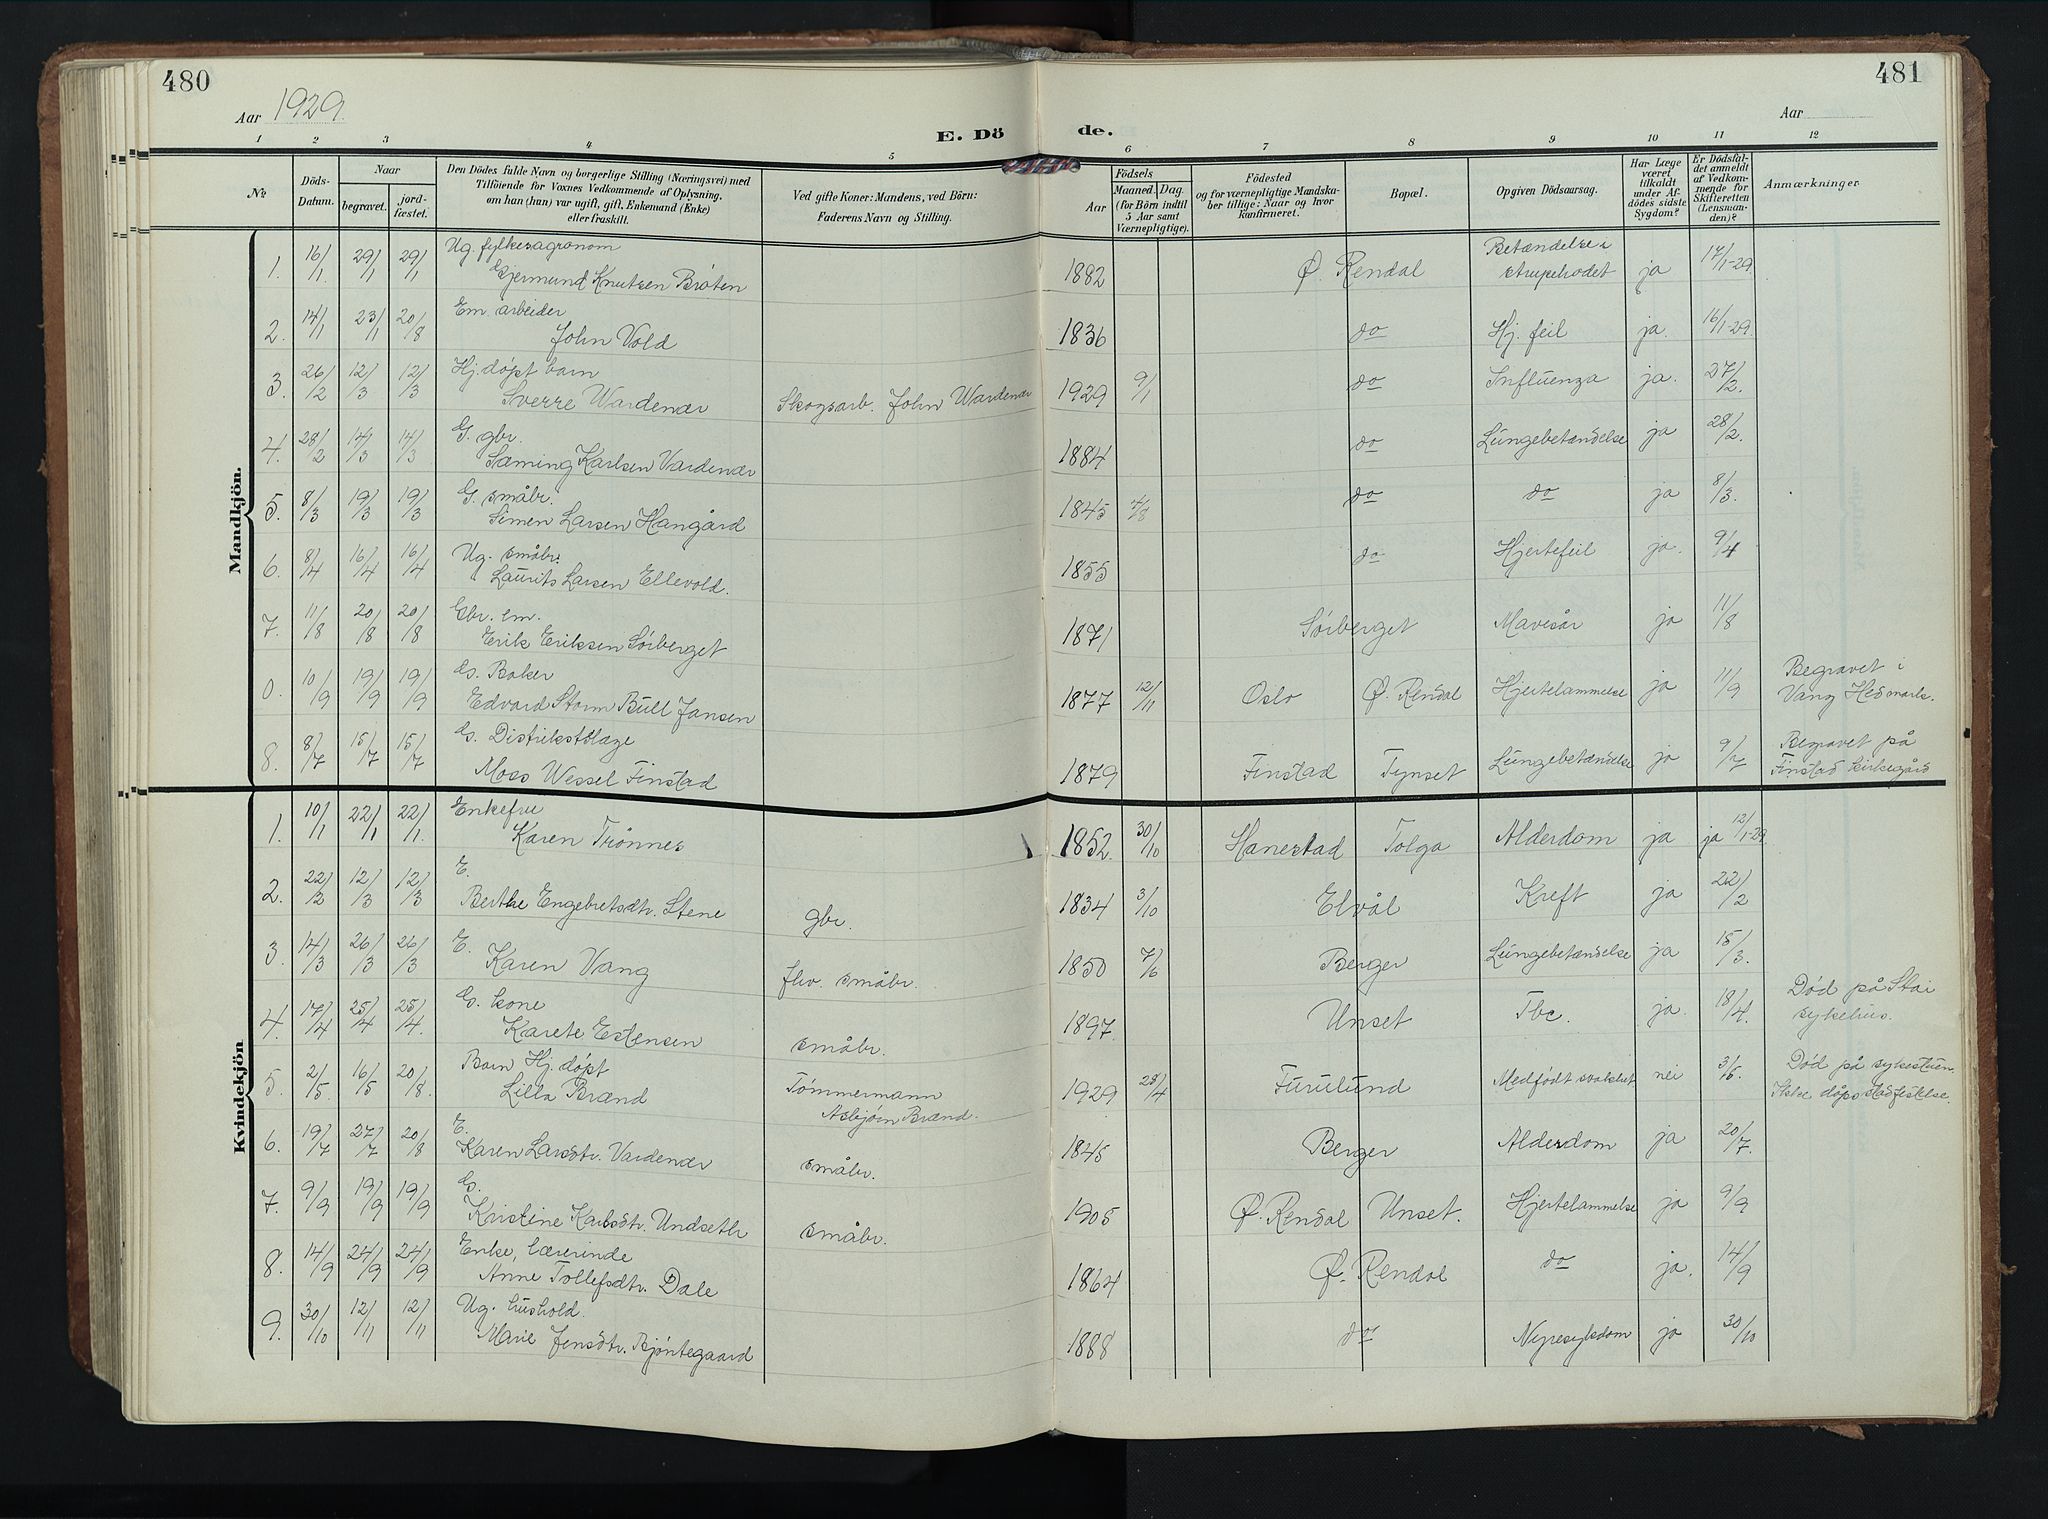 480
481
Aar 1929.
Aar
E. Dö
de.
1 2 3 4 5 6 7 8 9 10 11 12
No.
Döds-Datum.
Naar
begravet.
jord-fæstet.
Den Dödes fulde Navn og borgerlige Stilling (Næringsvei) med
Tilföiende for Voxnes Vedkommende af Oplysning,
om han (hun) var ugift, gift, Enkemand (Enke)
eller fraskilt.
Ved gifte Koner: Mandens, ved Börn:
Faderens Navn og Stilling.
Födsels
Aar
Maaned. Dag.
(for Börn indtil
5 Aar samt
Værnepligtige).
Födested
og for værnepligtige Mandska-
ber tillige: Naar og hvor
konfirmeret.
Bopæl.
Opgiven Dödsaarsag.
Har Læge
været
tilkaldt
under Af-
dödes sidste
Sygdom?
Er Dödsfal-
det anmeldt
af Vedkom-
mende for
Skifteretten
(Lensman-
den)?
Anmærkninger
Mandkjön.
1. 16/1 29/1 29/1 Ug. fylkesagronom
Gjermund Knutsen Bråten 1882 Ø. Rendal Betændelse i
strupehodet ja 17/1-29
2. 14/1 23/1 20/8 Em. arbeider
John Vold 1836 do Hj. feil ja. 16/1-29.
3. 26/2 12/3 12/3 Hj. døpt barn
Sverre Wardenær Skogsarb. John Wardenær 1929 9/1 do Influenza ja. 27/2.
4. 28/2 14/3 14/3 G. gbr.
Sæming Karlsen Vardenær 1884 do Lungebetændelse ja 28/2.
5. 8/3 19/3 19/3 G. småbr.
Simen Larsen Hangård 1845 4/8 do do ja 8/3.
6. 8/4 16/4 16/4 Ug. småbr.
Laurits Larsen Ellevold. 1855 do Hjertefeil ja. 9/4
7. 11/8 20/8 20/8 Gbr. em.
Erik Eriksen Sørberget 1871 Sørberget Mavesår ja 11/8
0. 10/9 19/9 19/9 G. Baker
Edvard Storm Bull Jansen 1877 12/11 Oslo Ø. Rendal Hjertelammelse ja 11/9 Begravet i
Vang Hedmark.
8. 8/7 15/7 15/7 G. Distriktslæge
Moss Wessel Finstad 1879 Finstad Tynset Lungebetændelse ja 9/7 Begravet på
Finstad kirkegård
Kvindekjön
1. 10/1 22/1 22/1. Enkefru
Karen Trønnes 1852. 30/10 Hanestad Tolga Alderdom ja ja 12/1-29.
2. 22/2 12/3 12/3 E.
Berthe Engebretsdtr. Stene gbr. 1834 3/10 Elvål Kreft ja 22/2
3. 14/3 26/3 26/3 E.
Karen Vang fhv. småbr. 1850 7/6 Berger Lungebetændelse ja 15/3.
4. 17/4 25/4 25/4. G. kone
Karete Estensen småbr. 1897. Unset Tbc. ja. 18/4. Død på Stai
sykehus.
5. 2/5. 16/5 20/8. Barn Hj. døpt
Lilla Brænd Tømmermann
Asbjørn Brænd. 1929 28/4 Furulund Medfødt svakhet nei 3/5. Død på sykestuen.
Ikke dåpsstadfestelse.
6. 19/7 27/7 20/8 E.
Karen Larsdtr. Vardenær småbr. 1845 Berger Alderdom ja 20/7.
7. 9/9 19/9 19/9 G.
Kristine Karlsdtr. Undseth småbr. 1905 Ø. Rendal Unset. Hjertelammelse ja 9/9
8. 14/9 24/9 24/9 Enke, lærerinde
Anne Tollefsdtr. Dale 1864 Ø. Rendal do ja. 14/9
9. 30/10 12/11 12/11 Ug. hushold.
Marie Jensdtr. Bjøntegaard 1888 do Nyresykdom ja 30/10